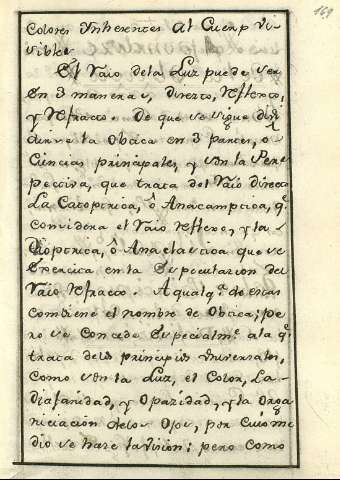 169
Colores Ynherentes al Cuerp Vi-
vible.
El Raio dela Luz puede ser
en 3 maneras, directo, reflecto,
y refracto. De que se sigue divi-
dirse la Obtica en 3 Partes, o
Ciencias principales, y son la Pers-
pectiva, que trata del Raio directo
La Catoptrica, ô Anacamptica, q.
considera el Raio reflexo, y la
Dioptrica, ô Anaclastica que se
Exercita en la Especulacion del
Raio refracto. A qualq.a de estas
combiene el nombre de Obtica; pe-
ro se concede Especialm.te a la q.
trata delos principios universales,
como son la Luz, el Color, La-
diafanidad, y Opazidad, y la Orga
nicíacion delos Ojos, por cuio me-
dio se haze la vision; pero como